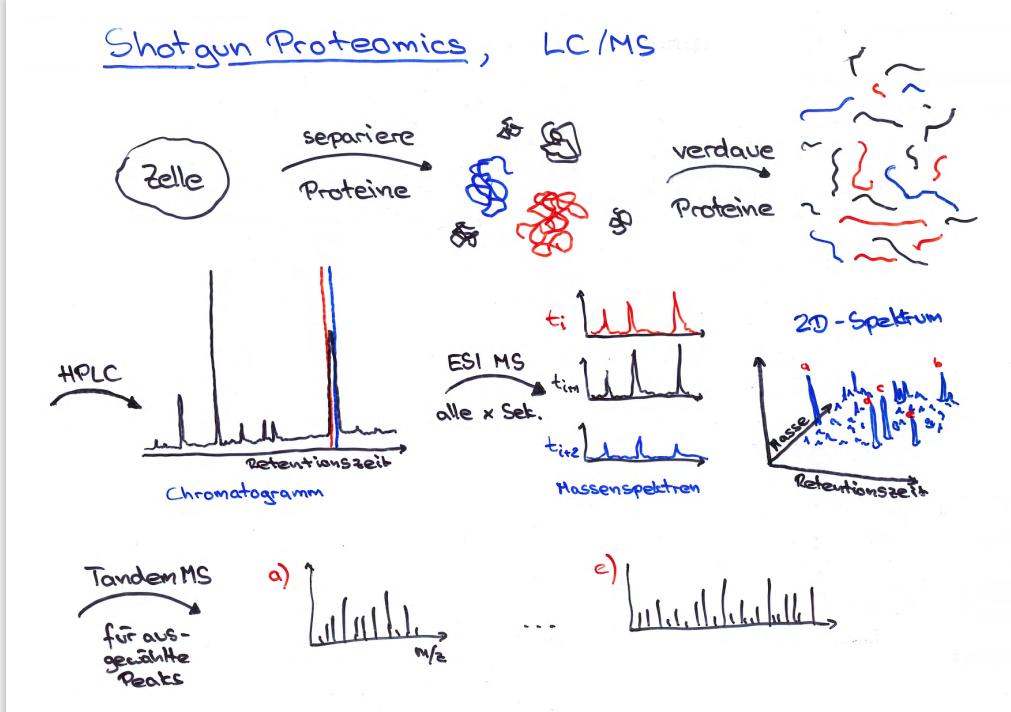 Shotgun Proteomics, LC/MS
Zelle
separiere
Proteine
verdaue
Proteine
HPLC
Retentionszeit
Chromatogramm
ESI MS
alle x Sek.
ti
ti+1
ti+2
Massenspektren
2D-Spektrum
a
b
c
d
e
Masse
Retentionszeit
Tandem MS
für aus-
gewählte
Peaks
a)
m/z
...
e)